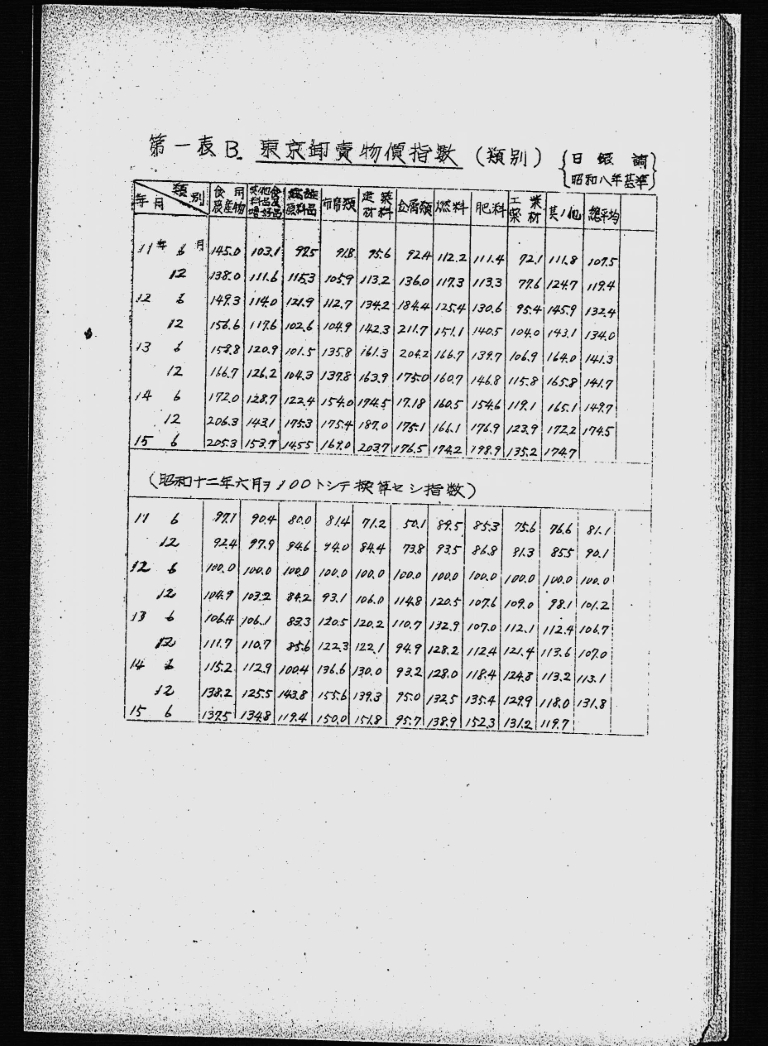 第一表B. 東京卸賣物價指数 (類別) {日銀調 昭和八年基準}
年月 類別 食用農産物 其他食料品及嗜好品 原料品 布帛類 建築材料 金属類 燃料 肥料 工業薬材 其ノ他 總平均
11年 6月 145.0 103.1 97.5 91.8 95.6 92.4 112.2 111.4 72.1 111.8 107.5
12 138.0 111.6 115.3 105.9 113.2 136.0 117.3 113.3 77.6 124.7 119.4
12 6 149.3 114.0 121.9 112.7 134.2 184.4 125.4 130.6 95.4 145.9 132.4
12 156.6 117.6 102.6 104.9 142.3 211.7 151.1 140.5 104.0 143.1 134.0
13 6 158.8 120.9 101.5 135.8 161.3 204.2 166.7 139.7 106.9 164.0 141.3
12 166.7 126.2 104.3 137.8 163.9 175.0 160.7 146.8 115.8 165.8 141.7
14 6 172.0 128.7 122.4 154.0 174.5 17.18 160.5 154.6 119.1 165.1 149.7
12 206.3 143.1 175.3 175.4 187.0 175.1 166.1 176.9 123.9 172.2 174.5
15 6 205.3 153.7 145.5 169.0 203.7 176.5 174.2 198.9 135.2 174.7
(昭和十二年六月ヲ100トシテ換算セシ指数)
11 6 97.1 90.4 80.0 81.4 71.2 50.1 89.5 85.3 75.6 76.6 81.1
12 92.4 97.9 94.6 94.0 84.4 73.8 93.5 86.8 81.3 85.5 90.1
12 6 100.0 100.0 100.0 100.0 100.0 100.0 100.0 100.0 100.0 100.0 100.0
12 104.9 103.2 84.2 93.1 106.0 114.8 120.5 107.6 109.0 98.1 101.2
13 6 106.4 106.1 83.3 120.5 120.2 110.7 132.9 107.0 112.1 112.4 106.7
12 111.7 110.7 85.6 122.3 122.1 94.9 128.2 112.4 121.4 113.6 107.0
14 6 115.2 112.9 100.4 136.6 130.0 93.2 128.0 118.4 124.8 113.2 113.1
12 138.2 125.5 143.8 155.6 139.3 95.0 132.5 135.4 129.9 118.0 131.8
15 6 137.5 134.8 119.4 150.0 151.8 95.7 138.9 152.3 131.2 119.7